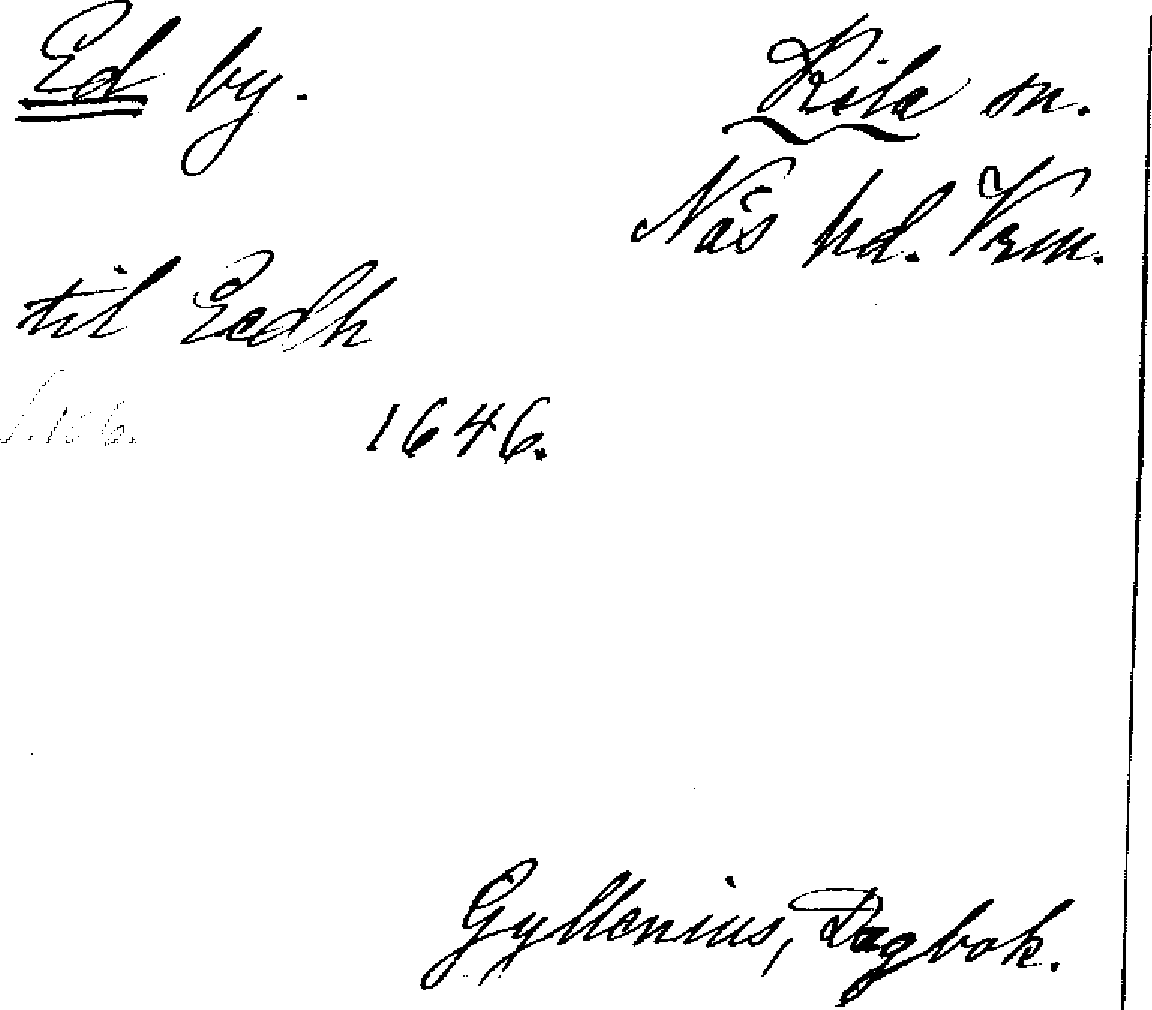 Ed by.
Kila sn.
Näs hd. Vrm.
til Eedh
s. 106.
1646.
Gyllenius, Dagbok.